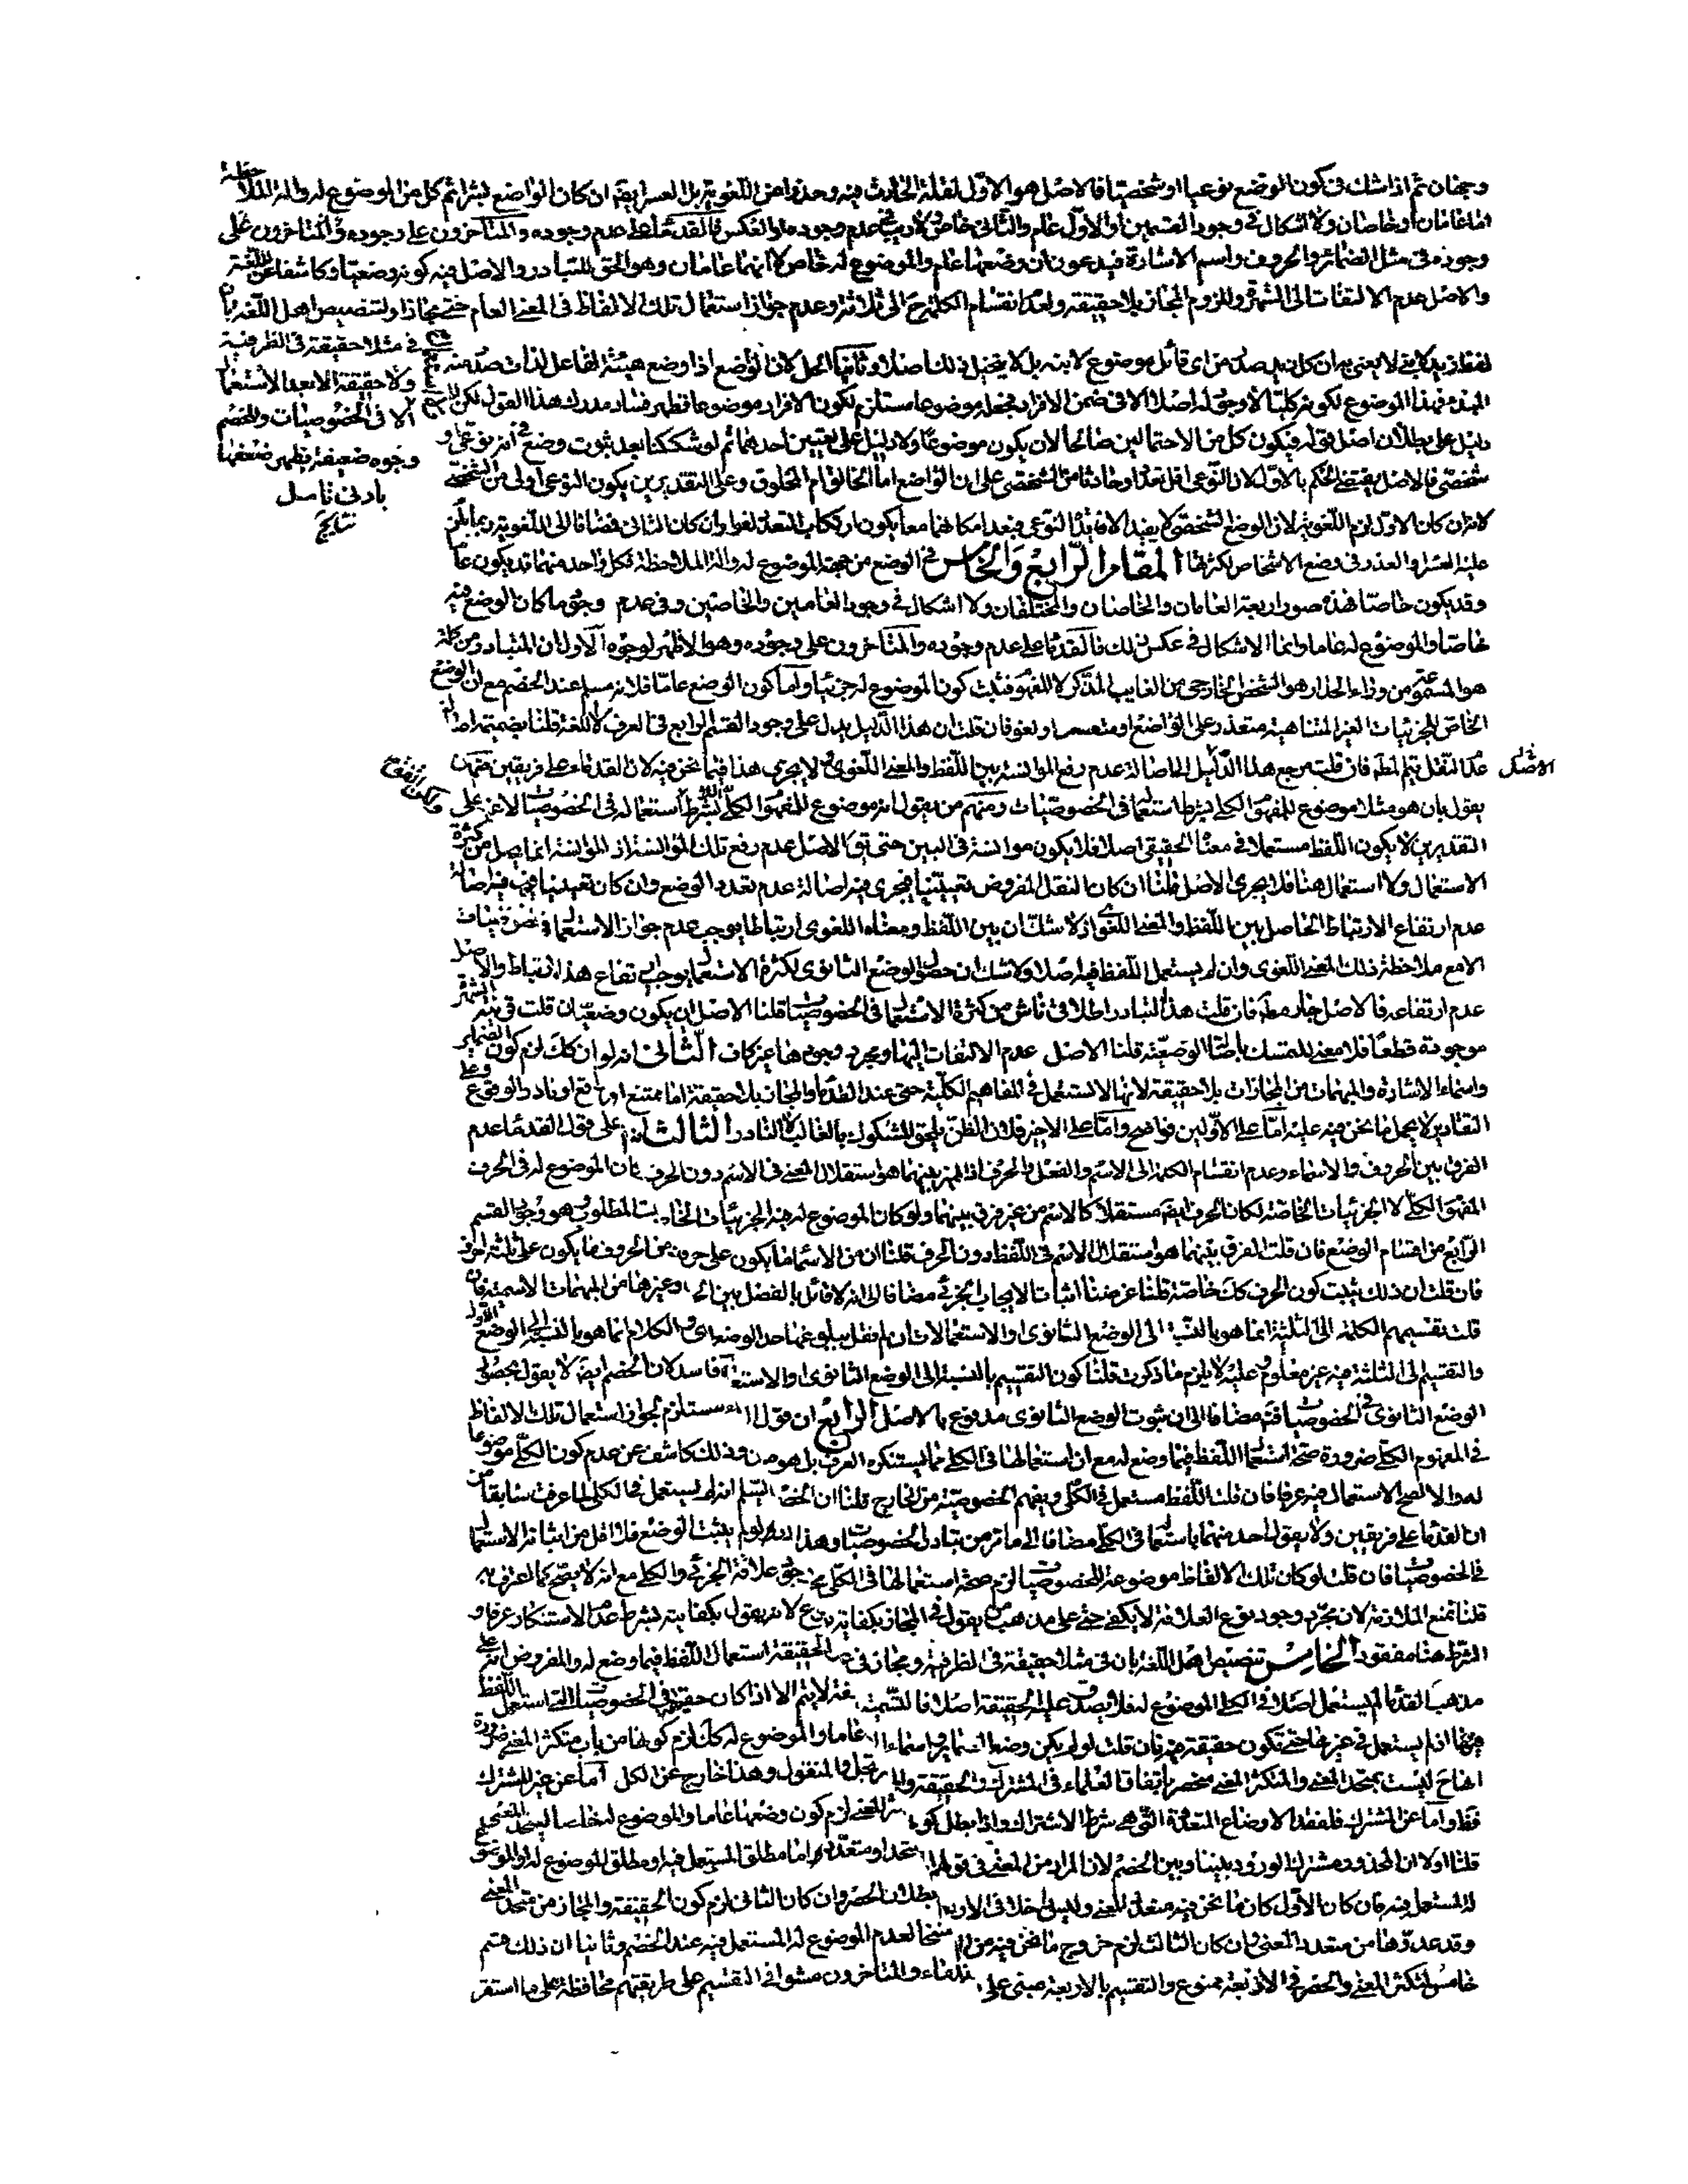 وجهان ثم اذا شك في كون الوضع نوعيا او شخصيا فالاصل هو الاول لقلة الحادث فيه وحذرا من اللغوية بل العسر ايضا ان كان الواضع بشرا ثم كل من الموضوع له والة الملاحظة
اما عامان او خاصان ولا اشكال في وجود القسمين او الاول عام والثاني خاص ولا ريب في عدم وجوده او العكس فالقدماء على عدم وجوده والمتأخرون على وجوده والمتاخرون على
وجوده في مثل الضمائر والحروف واسم الاشارة فيدعون ان وضعها عام والموضوع له خاص لا انهما عامان وهو الحق للتبادر والاصل فيه كونه وضعيا وكاشفا عن اللغة
والاصل عدم الالتفات الى الشهرة وللزوم المجاز بلا حقيقة ولعدم انقسام الكلمة ح الى ثلاثة وعدم جواز استعمال تلك الالفاظ في المعنى العام حتى مجازا ولتنصيص اهل اللغة بان
في مثلا حقيقة في الظرفية
ولا حقيقة الا بعد الاستعمال
الا في الخصوصيات وللخصم
وجوه ضعيفة يظهر ضعفها
بادنى تامل
نتايج
لفظ زيد لا يعنى به ان كل زيد صدر من اى قائل موضوع لابنه بل لا يتخيل ذلك اصلا وثانيا الحل لان الواضع اذا وضع هيئة الفاعل لذات صدر منه
المبدء فهذا الموضوع لكونه كليا لا وجود له اصلا الا في ضمن الافراد فجعله موضوعا مستلزم لكون الافراد موضوعا فظهر فساد مدرك هذا القول لكن لا
دليل على بطلان اصل قوله فيكون كل من الاحتمالين صالحا لان يكون موضوعا ولا دليل على تعيين احدهما ثم لو شككنا بعد ثبوت وضع في انه نوعى او
شخصى فالاصل يقتضى الحكم بالاول لان النوعى اقل تعددا وحادثا من الشخصى على ان الواضع اما الخالق او المخلوق وعلى التقديرين يكون النوعى اولى من الشخصى
لانه ان كان الاول لزم اللغوية لان الوضع الشخصى لا يفيد الا فائدة النوعى فبعد امكانهما معا يكون ارتكاب التعدد لغوا وان كان الثاني فمضافا الى اللغوية ربما يلزم
عليه العسر او التعذر في وضع الاشخاص لكثرتها المقام الرابع والخامس في الوضع من جهة الموضوع له والة الملاحظة فكل واحد منهما قد يكون عاما
وقد يكون خاصا فهذه صور اربعة العامان والخاصان والمختلفان ولا اشكال في وجود العامين والخاصين وفي عدم وجود ما كان الوضع فيه
خاصا والموضوع له عاما وانما الاشكال في عكس ذلك فالقدماء على عدم وجوده والمتأخرون على وجوده وهو الاظهر لوجوه الاول ان المتبادر من كلمة
هو المسموع من وراء الجدار هو الشخص الخارجى من الغايب المذكر لا المفهوم فثبت كون الموضوع له جزئيا واما كون الوضع عاما فلانه مسلم عند الخصم مع ان الوضع
الخاص للجزئيات الغير المتناهية متعذر على الواضع او متعسر او لغو فان قلت ان هذا الدليل يدل على وجود القسم الرابع في العرف لا اللغة قلنا بضميمة اصالة
عدم النقل يتم المطلوب فان قلت مرجع هذا الدليل الى اصالة عدم رفع الموانسة بين اللفظ والمعنى اللغوى ولا يجرى هذا فيما نحن فيه لان القدماء على فريقين منهم من
الاصل
يقول بان هو مثلا موضوع للمفهوم الكلى بشرط استعماله في الخصوصيات ومنهم من يقول انه موضوع للمفهوم الكلى لا بشرط استعماله في الخصوصيات لا غير على
التقديرين لا يكون اللفظ مستعملا في معناه الحقيقى اصلا فلا يكون موانسة في البين حتى يق الاصل عدم رفع تلك الموانسة اذ الموانسة انما يحصل من كثرة
الاستعمال ولا استعمال هنا فلا يجرى الاصل قلنا ان كان النقل المفروض تعيينيا فيجرى فيه اصالة عدم تعدد الوضع وان كان تعينيا فيجرى فيه اصالة
عدم ارتفاع الارتباط الحاصل بين اللفظ والمعنى اللغوى اذ لا شك ان بين اللفظ ومعناه اللغوى ارتباطا يوجب عدم جواز الاستعمال في
الا مع ملاحظة ذلك المعنى اللغوى وان لم يستعمل اللفظ فيه اصلا ولا شك ان حصول الوضع الثانوى لكثرة الاستعمال يوجب ارتفاع هذا الارتباط والاصل
عدم ارتفاعه فالاصل جار مطلقا فان قلت هذا التبادر اطلاقى ناش من كثرة الاستعمال في الخصوصيات قلنا الاصل ان يكون وضعيا ان قلت قرينة الشهرة
موجودة قطعا فلا معنى للتمسك باصالة الوضعية قلنا الاصل عدم الالتفات اليها ومجرد وجودها غير كاف الثاني انه لو كان كك لزم كون الضماير
واسماء الاشارة والمبهمات من المجازات بلا حقيقة لانها لا تستعمل في المفاهيم الكلية حتى عند القدماء والمجاز بلا حقيقة اما ممتنع او واقع او نادر الوقوع وعلى
التقادير لا يحمل ما نحن فيه عليه اما على الاولين فواضح واما على الاخير فلان الظن يلحق المشكوك بالغالب لا النادر الثالث انه على قول القدماء عدم
الفرق بين الحروف والاسماء وعدم انقسام الكلمة الى الاسم والفعل والحرف اذ المميز بينهما هو استقلال المعنى في الاسم دون الحرف فان الموضوع له في الحرف
المفهوم الكلى لا الجزئيات الخاصة لكان الحرف ايضا مستقلا كالاسم من غير فرق بينهما ولو كان الموضوع له هذه الجزئيات الخاصة ثبت المطلوب وهو وجود القسم
الرابع من اقسام الوضع فان قلت الفرق بينهما هو استقلال الاسم في اللفظ دون الحرف قلنا ان من الاسماء ما يكون على حرف ومن الحروف ما يكون على ثلثة احرف
فان قلت ان ذلك يثبت كون الحرف كك خاصة قلنا غرضنا اثبات الايجاب الجزئى مضافا الى انه لا قائل بالفصل بين الحروف وغيرها من المبهمات الاسمية فان
قلت تقسيمهم الكلمة الى الثلثة انما هو بالنسبة الى الوضع الثانوى او الاستعمالات ان لم نقل ببلوغها حد الوضع الثانوى والكلام انما هو بالنسبة الى الوضع الاول
والتقسيم الى الثلثة فيه غير معلوم وعليه لا يلزم ما ذكرت قلنا كون التقسيم بالنسبة الى الوضع الثانوى او الاستعمال فاسد لان الخصم ايضا لا يقول بحصول
الوضع الثانوى في الخصوصيات فتم مضافا الى ان ثبوت الوضع الثانوى مدفوع بالاصل الرابع ان قول القدماء مستلزم لجواز استعمال تلك الالفاظ
في المفهوم الكلى ضرورة صحة استعمال اللفظ فيما وضع له مع ان استعمالها في الكلى مما يستنكره العرف بل هو وذلك كاشف عن عدم كون الكلى موضوعا
له والا لصح الاستعمال فيه عرفا فان قلت اللفظ مستعمل في الكلى ويفهم الخصوصية من الخارج قلنا ان الخصم يسلم انه لم يستعمل في الكلى لما عرفت سابقا من
ان القدماء على فريقين ولا يقول احد منهما باستعمالها في الكلى مضافا الى ما مر من تبادر الخصوصيات وهذا لو لم يثبت الوضع فلا اقل من اثباته الاستعمال
في الخصوصيات فان قلت لو كان تلك الالفاظ موضوعة للخصوصيات لزم صحة استعمالها في الكلى مجازا علاقة الجزئى والكلى مع انه لا يصح كما اعترف به
قلنا نمنع الملازمة لان مجرد وجود نوع العلاقة لا يكفى حتى على مذهب من يقول في المجاز بكفاية نوع لانه يقول بكفايته بشرط عدم الاستنكار عرفا و
الشرط هنا مفقود الخامس تنصيص اهل اللغة بان في مثلا حقيقة في الظرفية ومجاز في الحقيقة استعمال اللفظ فيما وضع له والمفروض انه على
مذهب القدماء لم يستعمل اصلا في الكلى الموضوع له فلا يصدق عليه الحقيقة اصلا فالتسمية لا يتم الا اذا كان حقيقة في الخصوصيات التى استعمل اللفظ
فيها اذ لم يستعمل في غيرها حتى تكون حقيقة فيه فان قلت لو لم يكن وضع الضماير واسماء عاما والموضوع له كك لزم كونها من باب متكثر المعنى ضرورة
انها ح ليست بمتحد المعنى والمتكثر المعنى منحصر باتفاق العلماء في المشترك والحقيقة والمجاز والمرتجل والمنقول وهذا خارج عن الكل اما عن غير المشترك
فظ واما عن المشترك فلفقد الاوضاع المتعددة التى هى شرط الاشتراك واذا بطل كونها متكثر المعنى لزم كون وضعها عاما والموضوع له
قلنا اولا ان المحذور مشترك الورود بيننا وبين الخصم لان المراد من المعنى في قولهم متحد او متعدد اما مطلق المستعمل فيه او مطلق الموضوع له او الموضوع
له المستعمل فيه فان كان الاول كان ما نحن فيه متعدد المعنى وليس داخلا في الاربعة بطلان الحصر وان كان الثاني لزم كون الحقيقة والمجاز من متحد المعنى
وقد عدوها من متعدد المعنى وان كان الثالث لزم خروج ما نحن فيه من لعدم الموضوع له المستعمل فيه عند الخصم وثانيا ان ذلك قسم
خامس لمتكثر المعنى والحصر في الاربعة ممنوع والتقسيم بالاربعة مبنى على القدماء والمتاخرون مشوا في التقسيم على طريقتهم محافظة على ما استقر